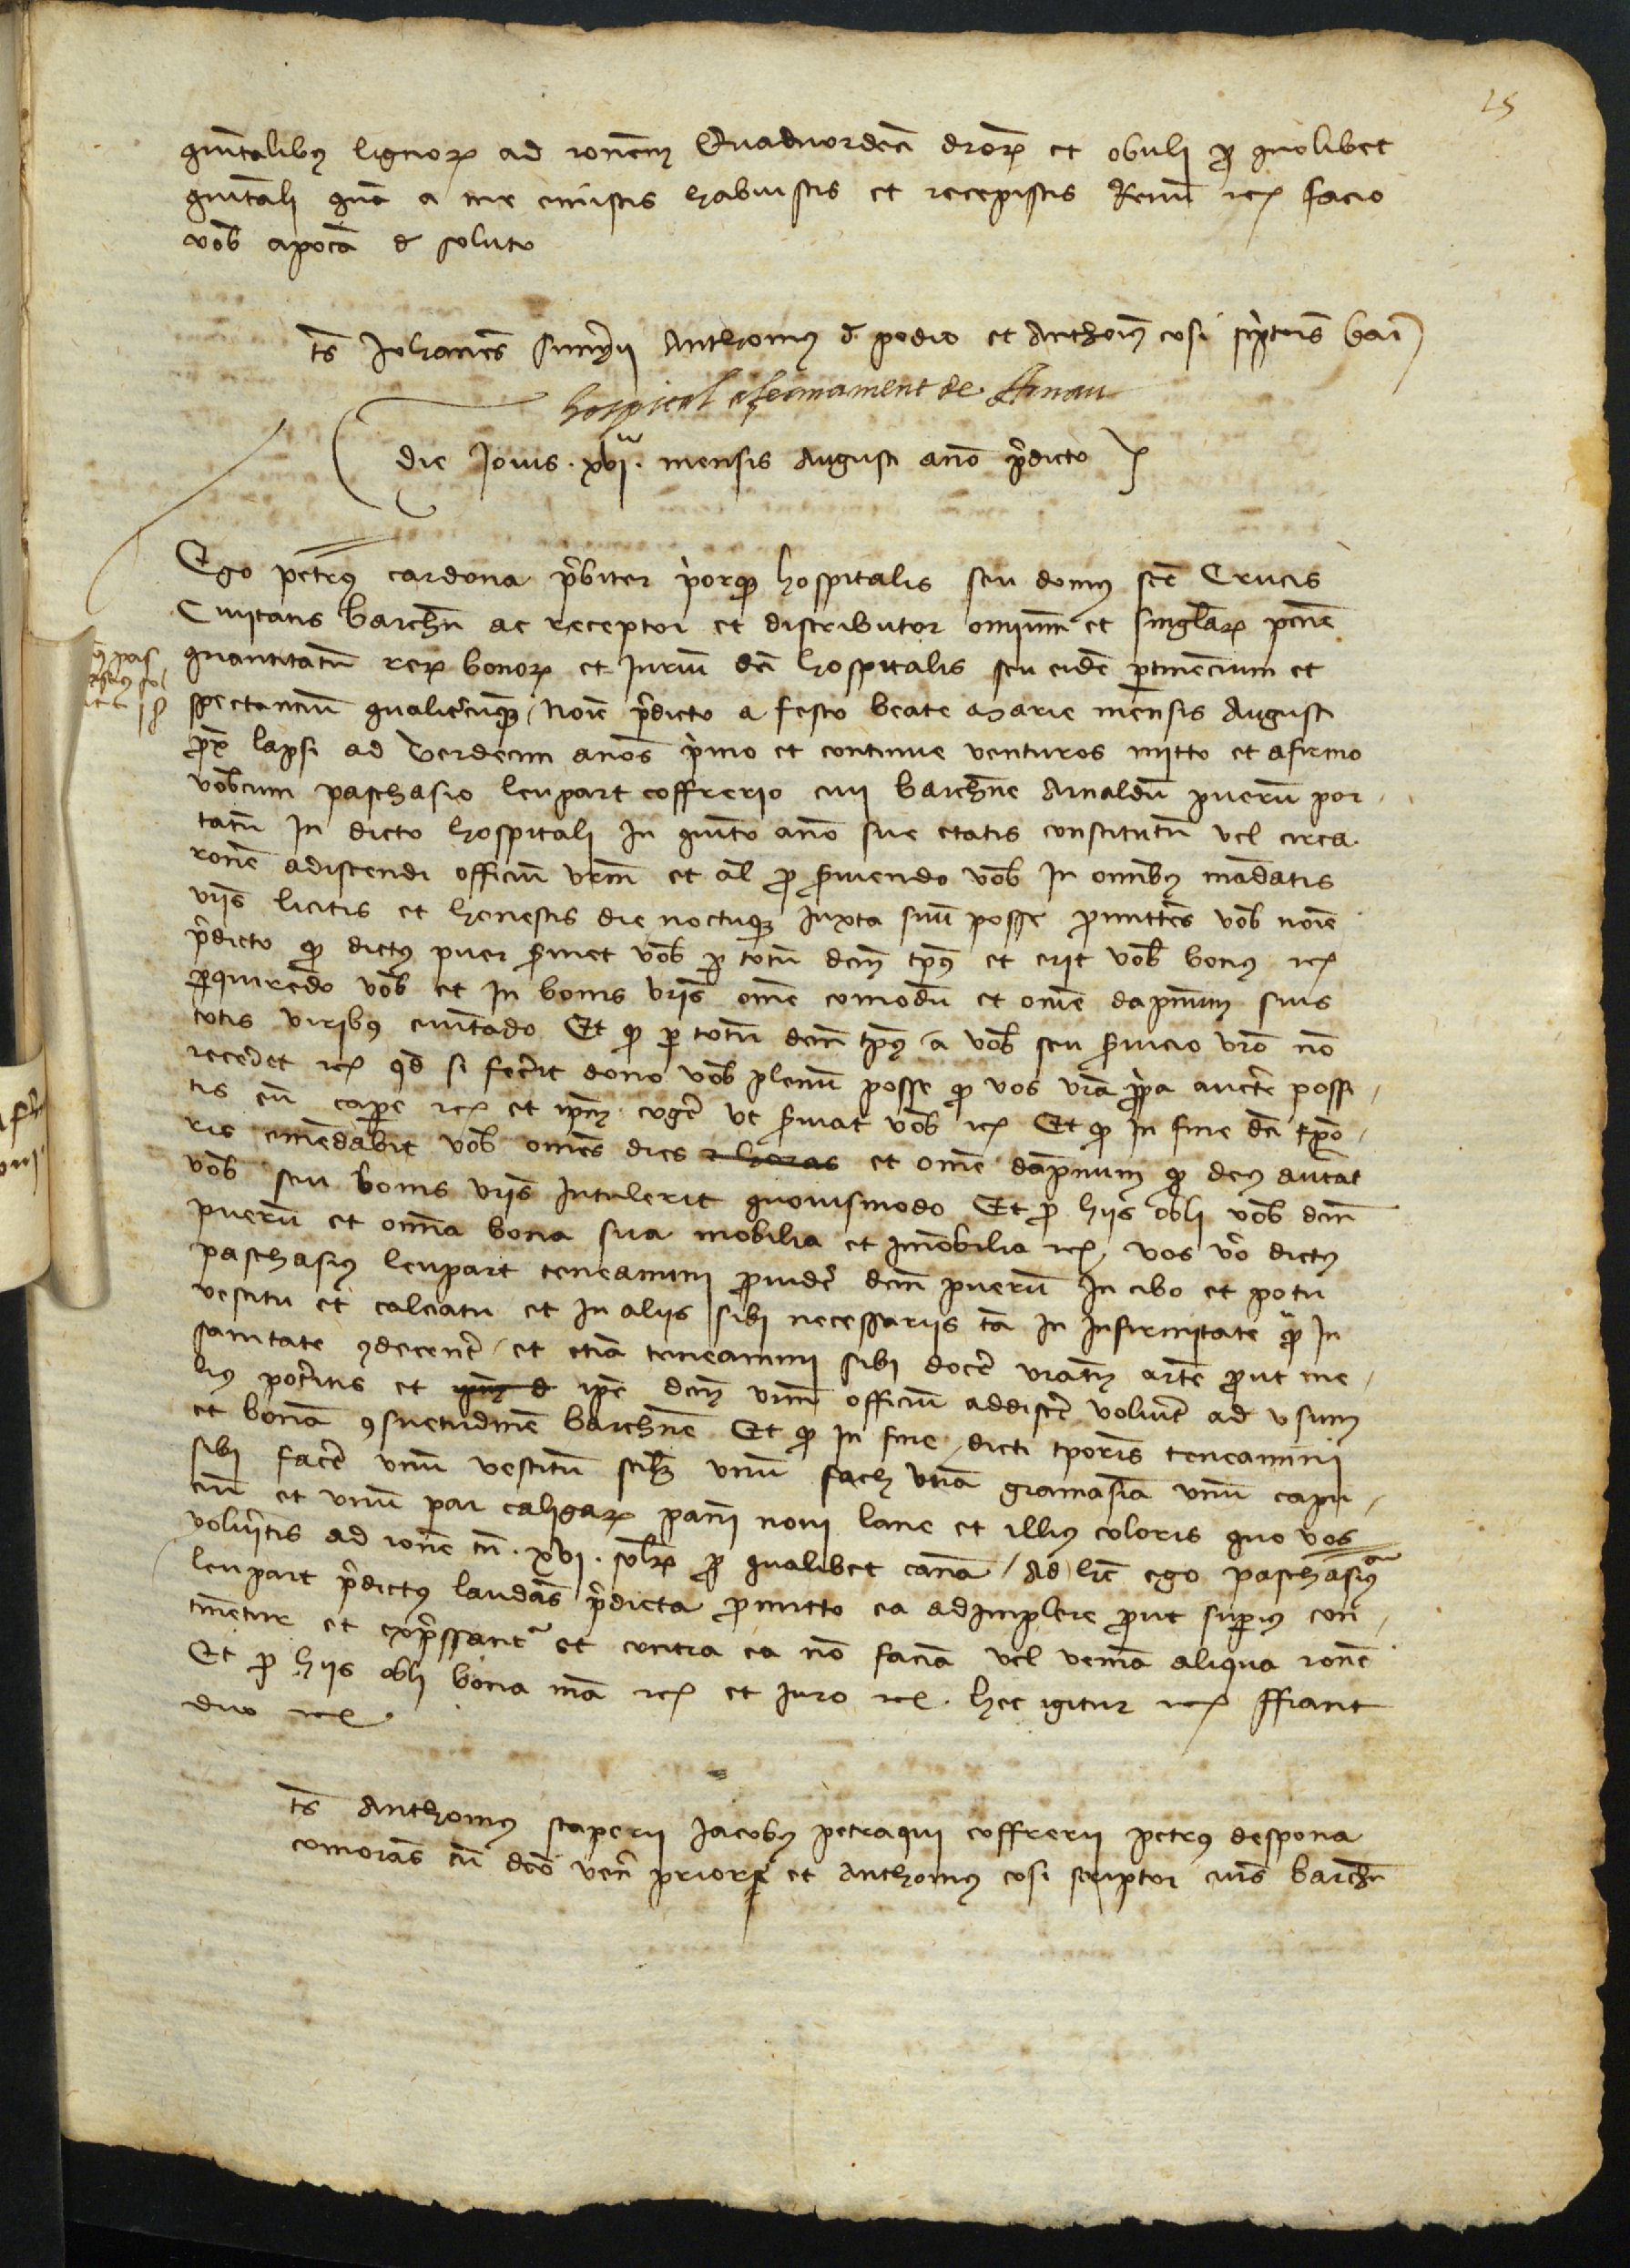 25
quintalibus lignorum ad ronem Quatuordecim drorum et obuli pro quolibet
quintali que a me emistis habuistis et recepistis Renun etc facio
vob apocam de soluto
ts Johanes Anthonius de podio et Anthonius cosi scriptores
hospital afermament de Arnau
die Jovis .xvi. mensis Augusti ano predicto
Ego petrus cardona prebiter prior hospitalis seu domus sce Crucis
Civitatis barchn ac receptor et distributor omnium et singularum pecunie
quantitatum rerum bonorum et Jurium dci hospitalis seu eidem pertinencium et
spectancium qualitercumque Noie predicto a festo beate marie mensis Augusti
prox lapsi ad Terdecim anos primo et continue venturos mitto et afirmo
vobcum paschasio leupart coffrerio civi barchne Arnaldum puerum por
tatum In dicto hospitali In quinto ano sue etatis constitutum vel circa
ronem adiscendi officium vrm et al pro serviendo vob In omnibus mandatis
vris licitis et honestis die noctuque Juxta suum posse promittens vob noie
predicto quod dictus puer serviet vob per totum dcm tpus et erit vob bonus etc
perquirendo vob et In bonis vris omne comodum et omne dapnum suis
totis viribus evitando Et quod per totum dcm tpus a vob seu servicio vro non
recedet etc quod si fecerit dono vob plenum posse quod vos vra propria aucte possi
tis eum capere etc et ipsum cogere ut serviat vob etc Et quod In fine dci tpo
ris emendabit vob omnes dies et horas et omne dapnum quod deus avertat
vob seu bonis vris Intulerit quovismodo Et pro hiis obli vob dcm
puerum et omnia bona sua mobilia et Imobilia etc vos vero dictus
paschasius leupart teneamini providere dcm puerum In cibo et potu
vestitu et calciatu et In aliis sibi necessariis tam In Infirmitate quam In
sanitate condecenter et etiam teneamini sibi docere vram artem prout me
lius poteritis et ipse dcm vrm officium addiscere voluerit ad usum
et bonam consuetudinem barchne Et quod In fine dicti tporis teneamini
sibi facere unum vestitum scilicet unum sach unam gramasiam unum capu
cium et unum par caligarum pani novi lane et illius coloris quo vos
volueritis ad ronem tn .xvi. solidorum pro qualibet cana Ad hec ego paschasius
leupart predictus laudans predicta promitto ea adimplere prout superius con
tinetur et expressantur et contra ea non faciam vel veniam aliqua ronem
Et pro hiis obli bona mea etc et Juro etc. hec igitur etc ffiant
duo etc
ts Anthonius staperii Jacobus petraqui coffrerii petrus despona
comorans cum dco ven priore et Anthonius cosi scriptor civis barchn